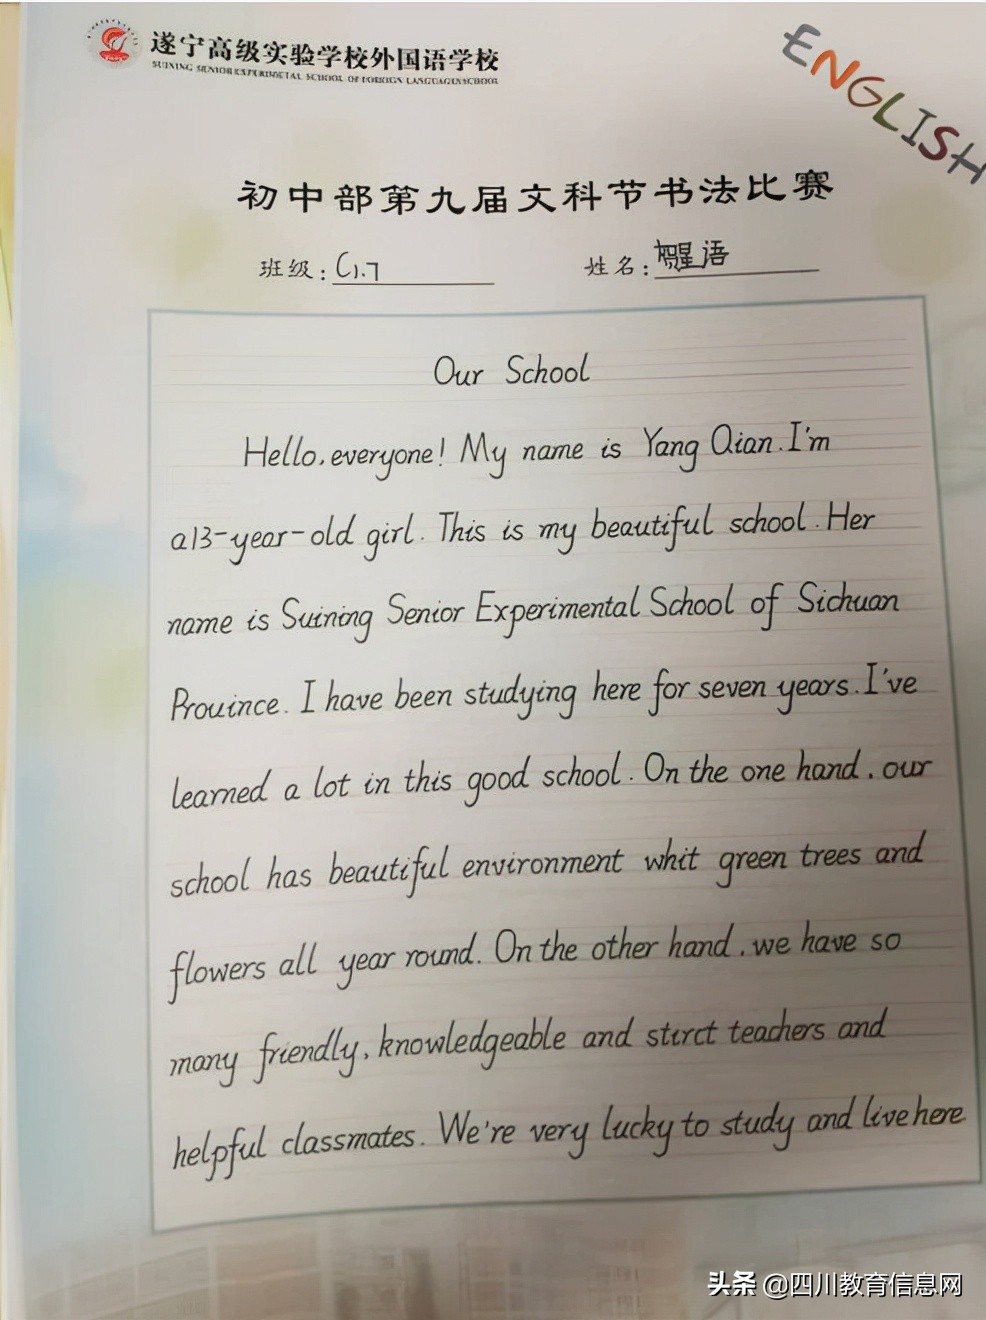 遂宁高级实验学校外国语学校
SUINING SENIOR EXPERIMETAL SCHOOL OF FOREIGN LANGUAGES SCHOOL
ENGLISH
初中部第九届文科节书法比赛
班级: C1.7 姓名: 星语
Our School
Hello, everyone! My name is Yang Qian. I'm
a 13-year-old girl. This is my beautiful school. Her
name is Suining Senior Experimental School of Sichuan
Prouince. I have been studying here for seven years. I've
learned a lot in this good school. On the one hand, our
school has beautiful environment whit green trees and
flowers all year round. On the other hand, we have so
many friendly, knowledgeable and stirct teachers and
helpful classmates. We're very lucky to study and live here
头条 @四川教育信息网